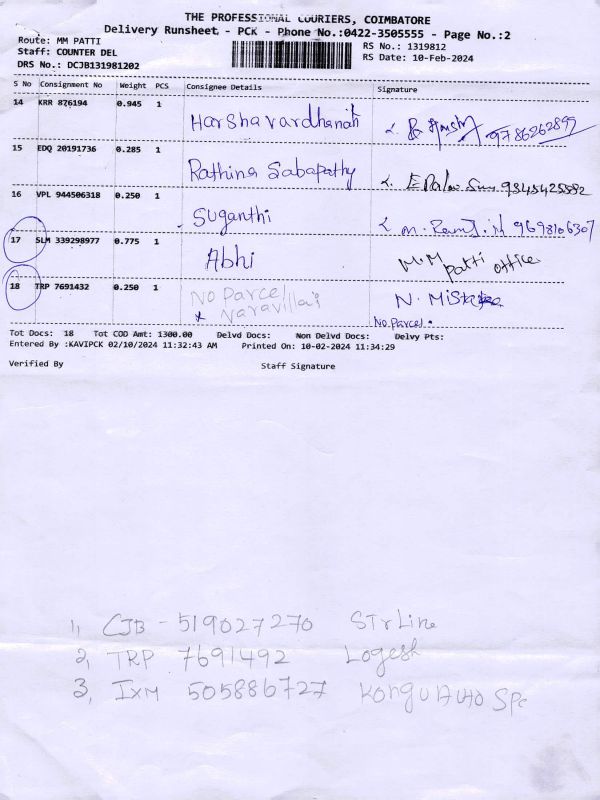 THE PROFESSIONAL COURIERS, COIMBATORE
Delivery Runsheet - PCK - Phone No.:0422-3505555 - Page No.:2
Route: MM PATTI
Staff: COUNTER DEL
DRS No.: DCJB131981202
RS No.: 1319812
RS Date: 10-Feb-2024
S No Consignment No Weight PCS Consignee Details Signature
14 KRR 876194 0.945 1 Harshavardhanan 9786262899
15 EDQ 20191736 0.285 1 Rathina Sabapathy 9345425582
16 VPL 944506318 0.250 1 Suganthi 9698106307
17 SLM 339298977 0.775 1 Abhi M.M
patti office
18 TRP 7691432 0.250 1 No Parcel N. Mistake
Naravillai
No Parcel.
Tot Docs: 18 Tot COD Amt: 1300.00 Delvd Docs: Non Delvd Docs: Delvy Pts:
Entered By :KAVIPCK 02/10/2024 11:32:43 AM Printed On: 10-02-2024 11:34:29
Verified By Staff Signature
1, CJB - 519027270 STrLine
2, TRP 7691492 Logesh
3, IXM 505886727 Kongu Auto Spc